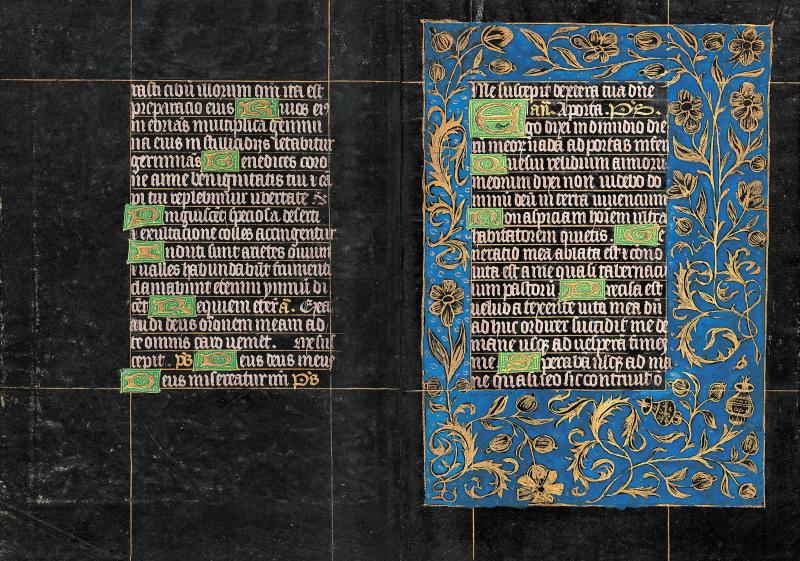 rasti cibū illorum qm̄ ita est
preparatio eius Riuos ei⁹
inebrias multiplica genimi
na eius in stillicidijs letabitur
germinās Benedices coro
ne anni benignitatis tui ⁊ cā
pi tui replebūtur ubertate
Pinguescēt speciosa deserti
⁊ exultatione colles accingentur
Induti sunt arietes ouium
⁊ ualles habundabūt frumento
clamabunt etenim ymnū di
cēt Requiem eter̄ a͞. Exa
audi deus or̄onem meam ad
te omnis caro ueniet. Me sus
cepit. ps Deus deus meus
Deus misereatur nr̄i ps
Me suscepit dextera tua dn̄e
an̄. A porta. ps.
Ego dixi in dimidio die
Quesiui residuum annorū
meorum dixi non uidebo do
minū deū in terra uiuentium
Non aspiciam hoīem ultra
habitatorem quietis. Ge
neratio mea ablata est ⁊ cōuo
luta est a me quasi tabernacu
lum pastorū Precisa est
uelud a texente uita mea dū
adhuc ordirer succidit me de
mane usq̄ ad uesperā finies
me Sperabā usq̄ ad ma
ne quasi leo sic contriuit o